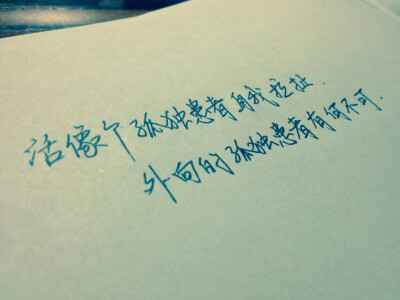 活像个孤独患者自我拉扯.
外向的孤独患者有何不可.